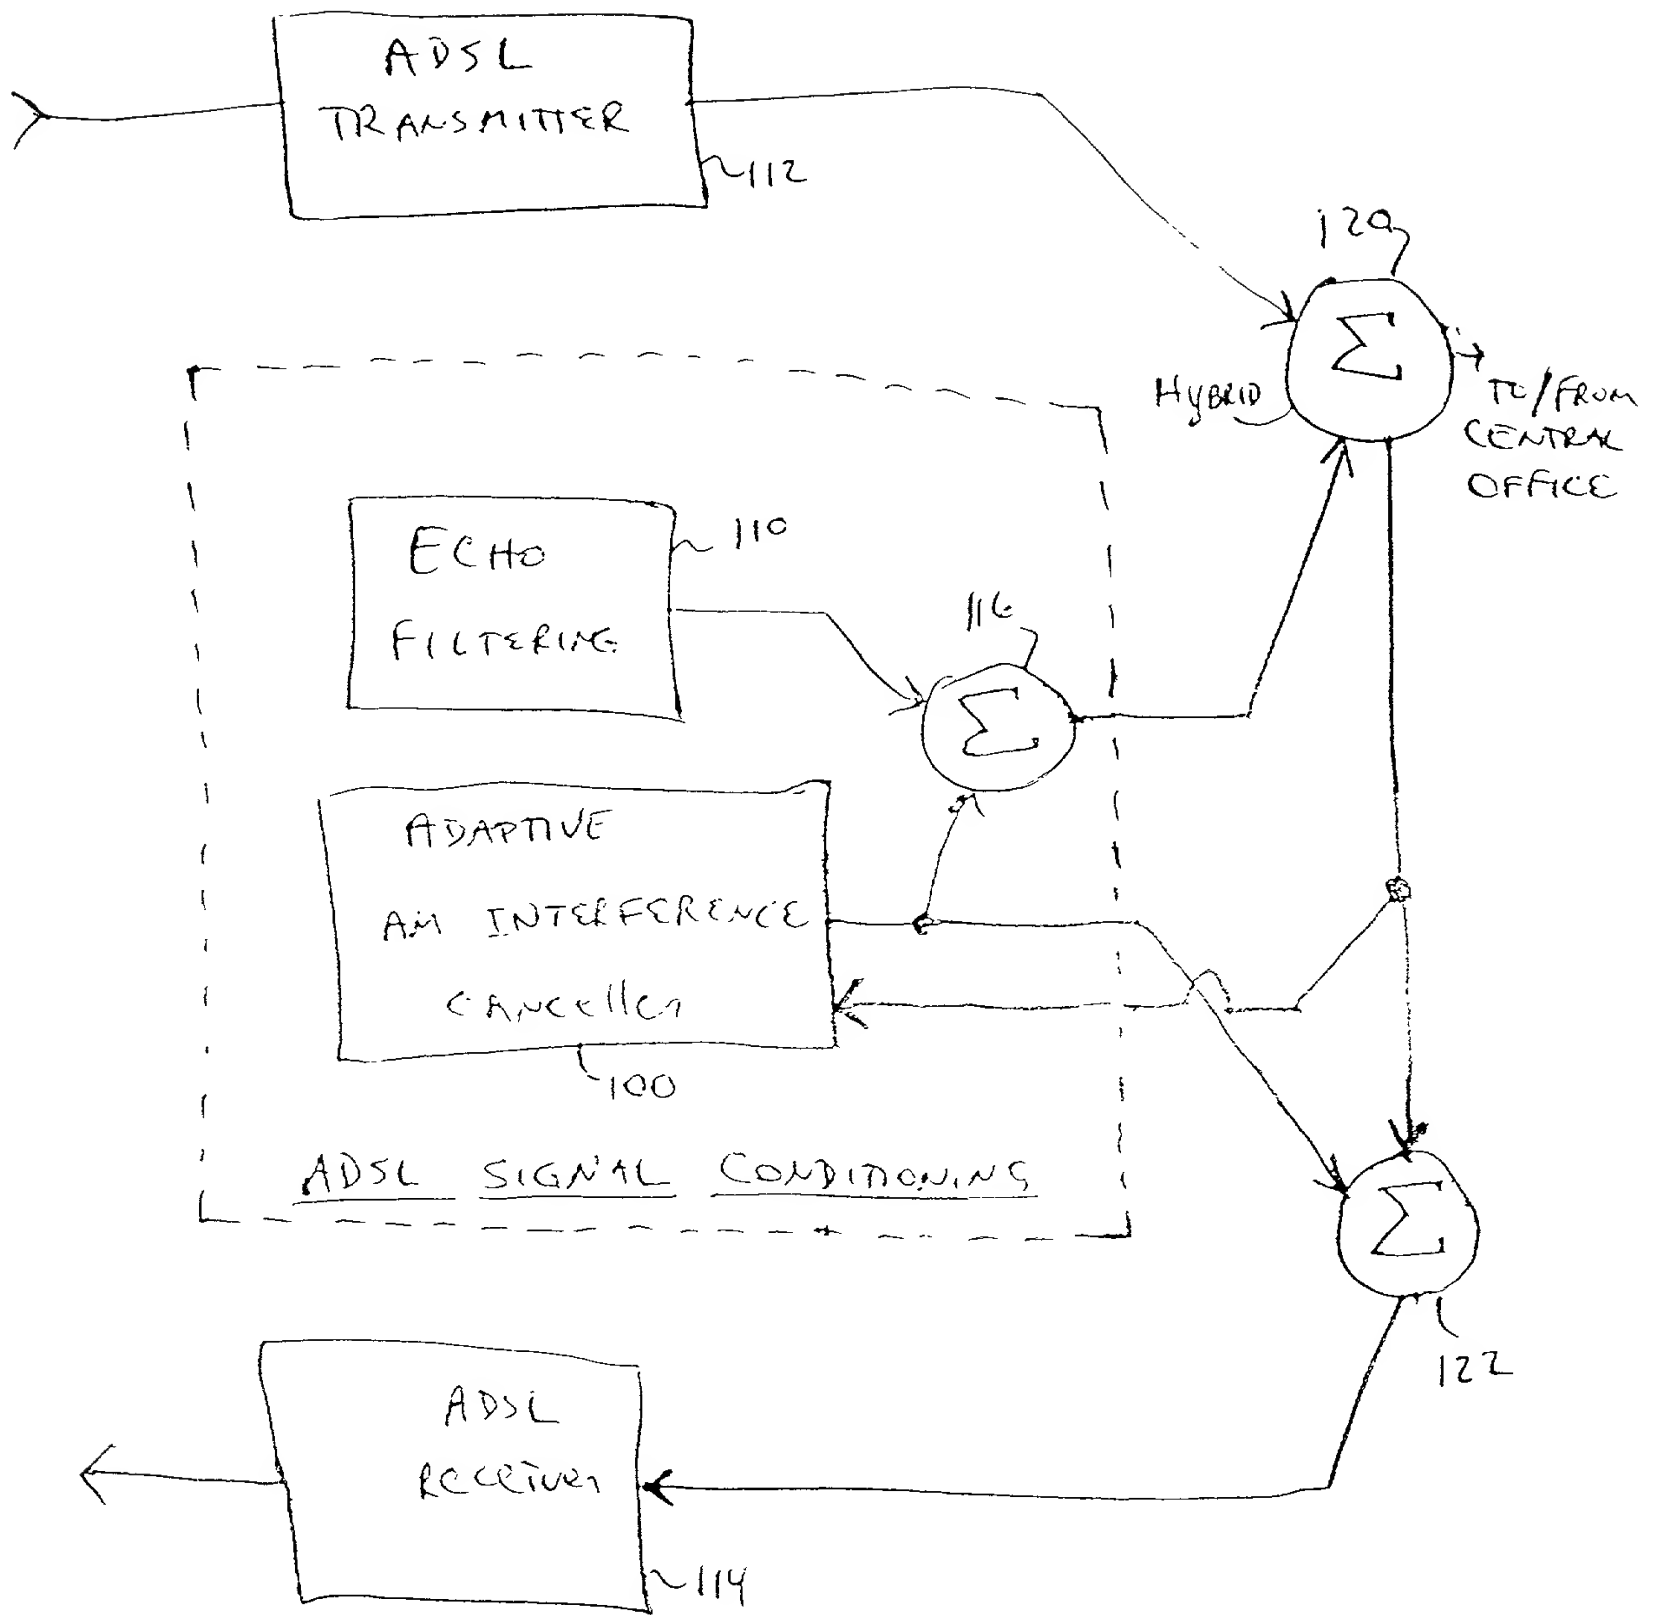 ADSL
TRANSMITTER
112
120
Σ
HYBRID
TO/FROM
CENTRAL
OFFICE
ECHO
FILTERING
110
116
Σ
ADAPTIVE
AM INTERFERENCE
CANCELLER
100
ADSL SIGNAL CONDITIONING
Σ
122
ADSL
RECEIVER
114